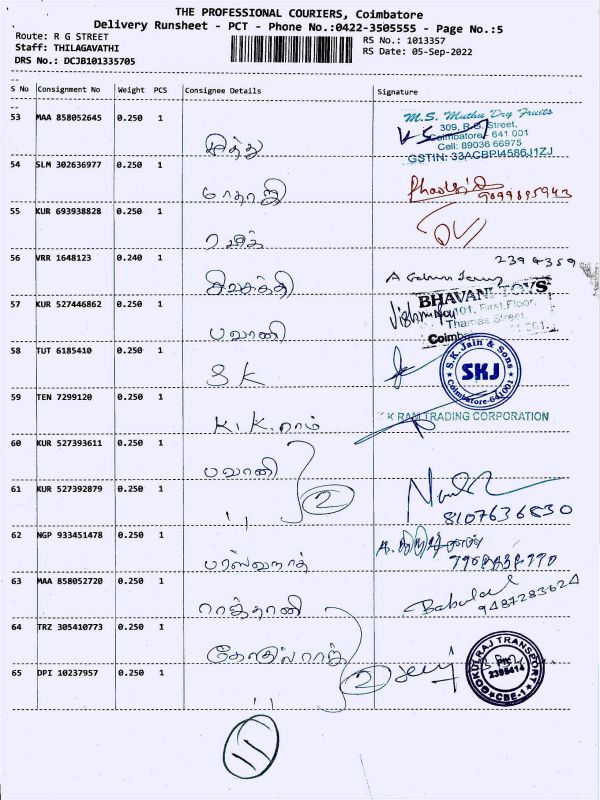 THE PROFESSIONAL COURIERS, Coimbatore
Delivery Runsheet - PCT - Phone No.:0422-3505555 - Page No.:5
Route: R G STREET
Staff: THILAGAVATHI
DRS No.: DCJB101335705
RS No.: 1013357
RS Date: 05-Sep-2022
S No Consignment No Weight PCS Consignee Details Signature
53 MAA 858052645 0.250 1
முத்து
M.S. Muthu Dry Fruits
309, R.G. Street,
Coimbatore - 641 001
Cell: 89036 66975
GSTIN: 33ACBPI4586J1ZJ
54 SLM 302636977 0.250 1
55 KUR 693938828 0.250 1
56 VRR 1648123 0.240 1
சிவசக்தி
2394359
57 KUR 527446862 0.250 1
பவானி
BHAVANI TOYS
101, First Floor,
Thomas Street,
58 TUT 6185410 0.250 1
S K
S.K. Jain & Sons
SKJ
Coimbatore-641001
59 TEN 7299120 0.250 1
K.K. ராம்
K RAM TRADING CORPORATION
60 KUR 527393611 0.250 1
பவானி
2
61 KUR 527392879 0.250 1
"
8107636830
62 NGP 933451478 0.250 1
பரஸ்வநாத்
63 MAA 858052720 0.250 1
ராத்தானி
Babulal
9487283624
64 TRZ 305410773 0.250 1
கோகுல்ராஜ்
2
65 DPI 10237957 0.250 1
"
GOKULRAJ TRANSPORT
2395414
CBE-1
11